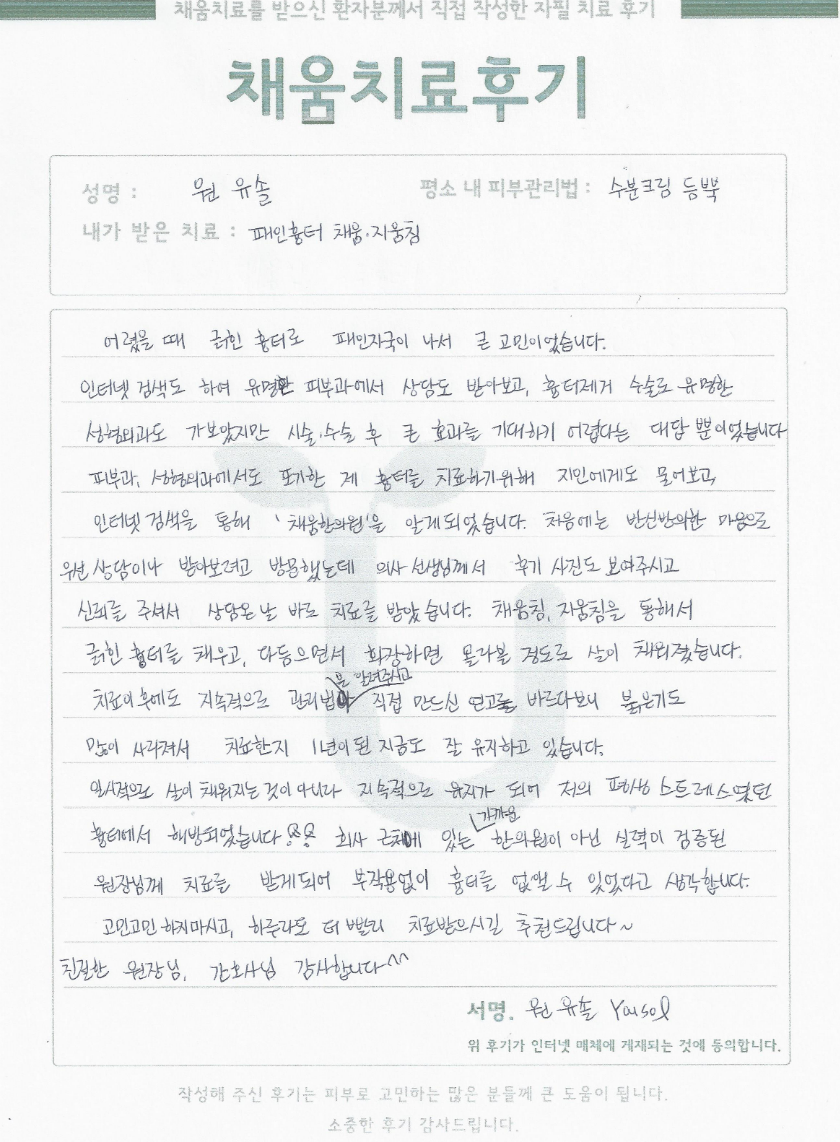 채움치료를 받으신 환자분께서 직접 작성한 자필 치료 후기
채움치료후기
성명 : 원 유솔 평소 내 피부관리법 : 수분크림 듬뿍
내가 받은 치료 : 패인흉터 채움·지움침
어렸을 때 긁힌 흉터로 패인자국이 나서 큰 고민이었습니다.
인터넷 검색도 하여 유명한 피부과에서 상담도 받아보고, 흉터제거 수술로 유명한
성형외과도 가보았지만 시술·수술 후 큰 효과를 기대하기 어렵다는 대답 뿐이었습니다
피부과, 성형외과에서도 포기한 제 흉터를 치료하기위해 지인에게도 물어보고,
인터넷 검색을 통해 '채움한의원'을 알게되었습니다. 처음에는 반신반의한 마음으로
우선 상담이나 받아보려고 방문했는데 의사 선생님께서 후기 사진도 보여주시고
신뢰를 주셔서 상담온 날 바로 치료를 받았습니다. 채움침, 지움침을 통해서
긁힌 흉터를 채우고, 다듬으면서 화장하면 몰라볼 정도로 살이 채워졌습니다.
치료이후에도 지속적으로 관리법을 알려주시고 직접 만드신 연고를 바르다보니 붉은기도
많이 사라져서 치료한지 1년이 된 지금도 잘 유지하고 있습니다.
일시적으로 살이 채워지는 것이 아니라 지속적으로 유지가 되어 저의 평생 스트레스였던
흉터에서 해방되었습니다 회사 근처에 있는 가까운 한의원이 아닌 실력이 검증된
원장님께 치료를 받게되어 부작용없이 흉터를 없앨 수 있었다고 생각합니다.
고민고민 하지마시고, 하루라도 더 빨리 치료받으시길 추천드립니다~
친절한 원장님, 간호사님 감사합니다^^
서명. 원 유솔 Yousol
위 후기가 인터넷 매체에 게재되는 것에 동의합니다.
작성해 주신 후기는 피부로 고민하는 많은 분들께 큰 도움이 됩니다.
소중한 후기 감사드립니다.